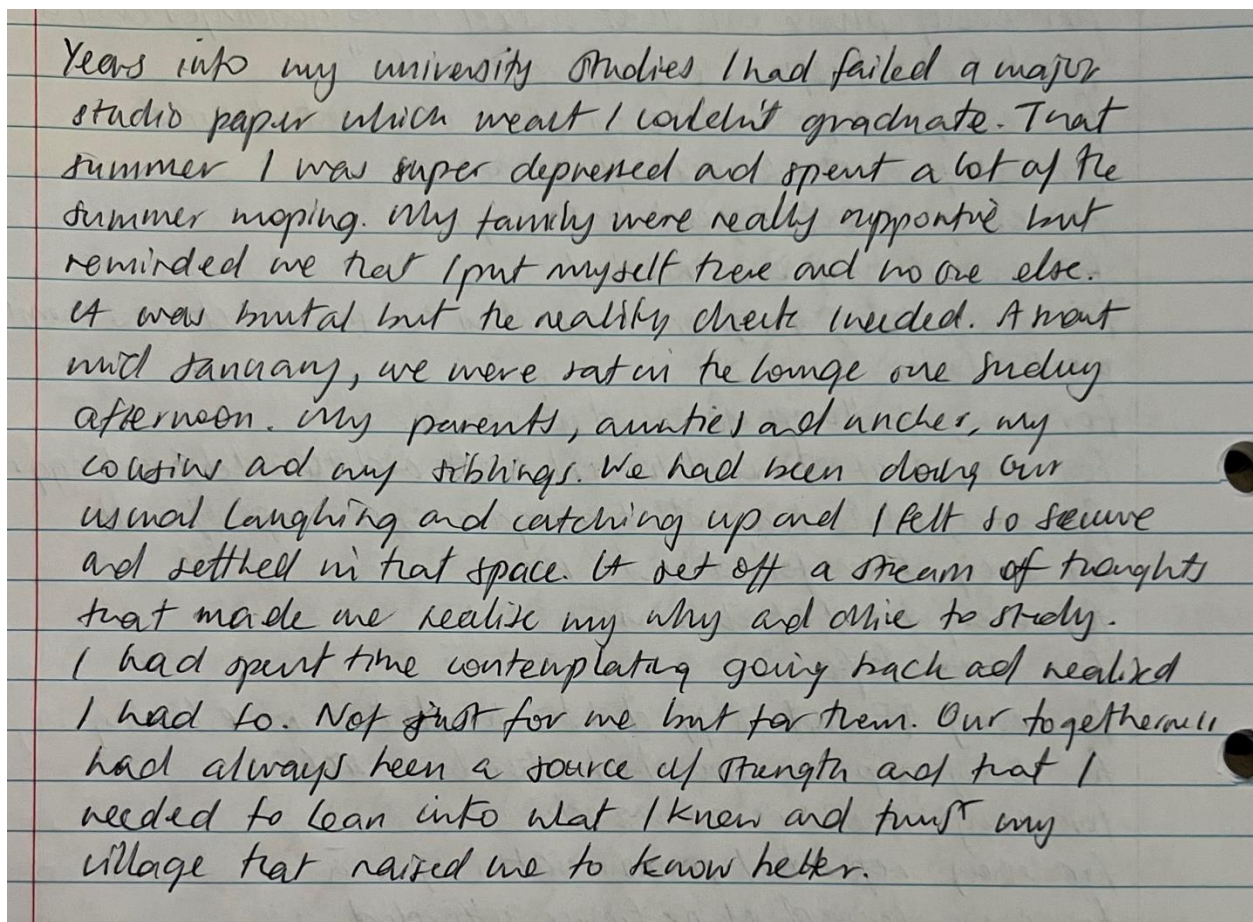 Years into my university studies I had failed a major
studio paper which meant I couldn't graduate. That
summer I was super depressed and spent a lot of the
summer moping. My family were really supportive but
reminded me that I put myself there and no one else.
It was brutal but the reality check I needed. About
mid January, we were sat in the lounge one Sunday
afternoon. My parents, aunties and uncles, my
cousins and my siblings. We had been doing our
usual laughing and catching up and I felt so secure
and settled in that space. It set off a stream of thoughts
that made me realise my why and drive to study.
I had spent time contemplating going back and realised
I had to. Not just for me but for them. Our togetherness
had always been a source of strength and that I
needed to lean into what I knew and trust my
village that raised me to know better.